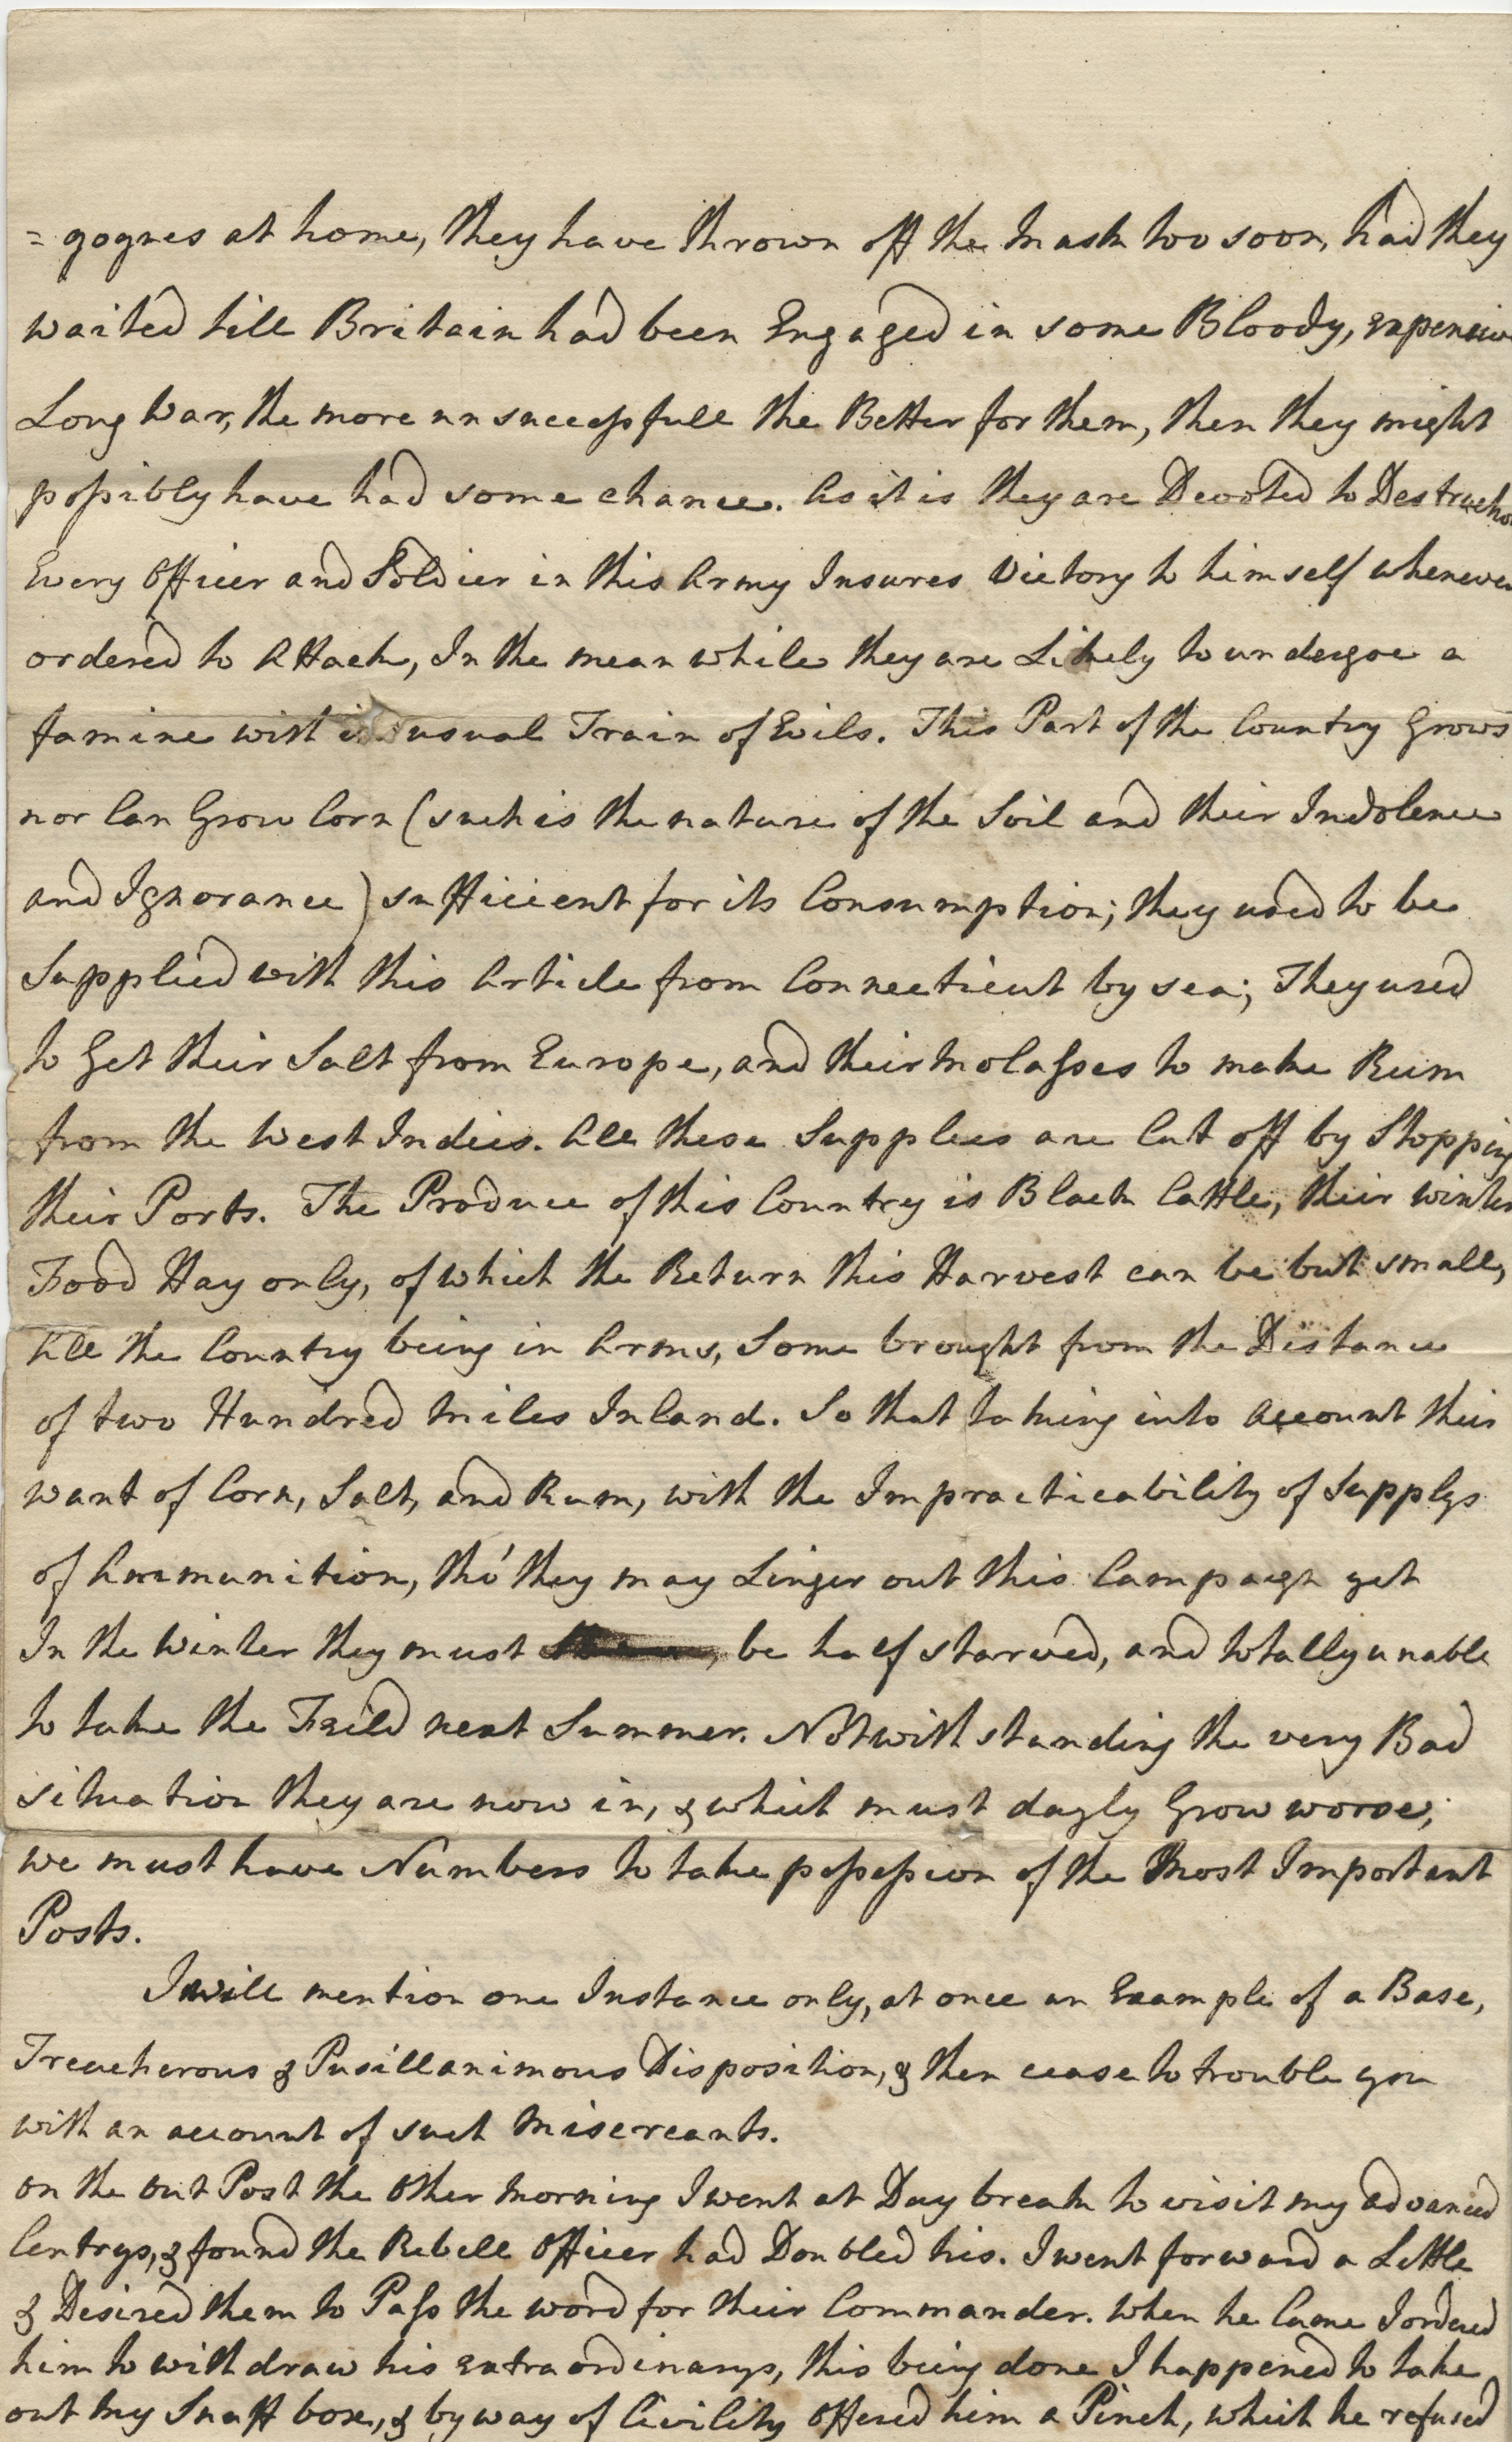 = gogues at home, they have thrown off the Mask too soon, had they
waited till Britain had been Engaged in some Bloody, expensive
Long War, the more unsuccessfull the Better for them, then they might
possibly have had some chance. As it is they are Devoted to Destruction
Every Officer and Soldier in this Army Insures Victory to himself whenever
ordered to Attack, In the mean while they are Likely to undergoe a
famine with its usual Train of Evils. This Part of the Country Grows
nor Can Grow Corn (such is the nature of the Soil and their Indolence
and Ignorance) sufficient for its Consumption; they used to be
Supplied with this Article from Connecticut by sea; They used
to Get their Salt from Europe, and their Molasses to make Rum
from the West Indies. All these Supplies are Cut off by Stopping
their Ports. The Produce of this Country is Black Cattle, their winter
Food Hay only, of which the Return this Harvest can be but small,
All the Country being in Arms, Some brought from the Distance
of two Hundred Miles Inland. So that taking into Account their
want of Corn, Salt, and Rum, with the Impracticability of Supplys
of Ammunition, tho' they may Linger out this Campaign yet
In the Winter they must be half starved, and totally unable
to take the Feild next Summer. Notwithstanding the very Bad
situation they are now in, & which must dayly Grow worse;
we must have Numbers to take possession of the Most Important
Posts.
I will mention one Instance only, at once an Example of a Base,
Treacherous & Pusillanimous Disposition, & then cease to trouble you
with an account of such Miscreants.
on the out Post the Other Morning I went at Day break to visit my advanced
Centrys, & found the Rebell Officer had Doubled his. I went forward a Little
& Desired them to Pass the word for their Commander. When he Came I ordered
him to withdraw his extraordinarys, this being done I happened to take
out my Snuff box, & by way of Civility Offered him a Pinch, which he refused